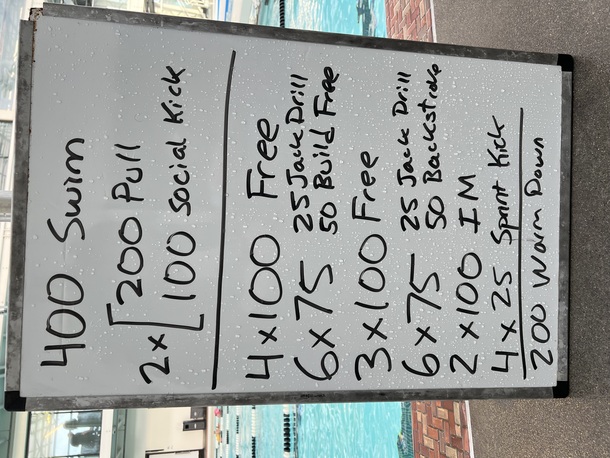 400 Swim
2x[200 Pull
100 Social Kick
4x100 Free
6x75 25 Jack Drill
50 Build Free
3x100 Free
6x75 25 Jack Drill
50 Backstroke
2x100 IM
4x25 Sprint Kick
200 Warm Down